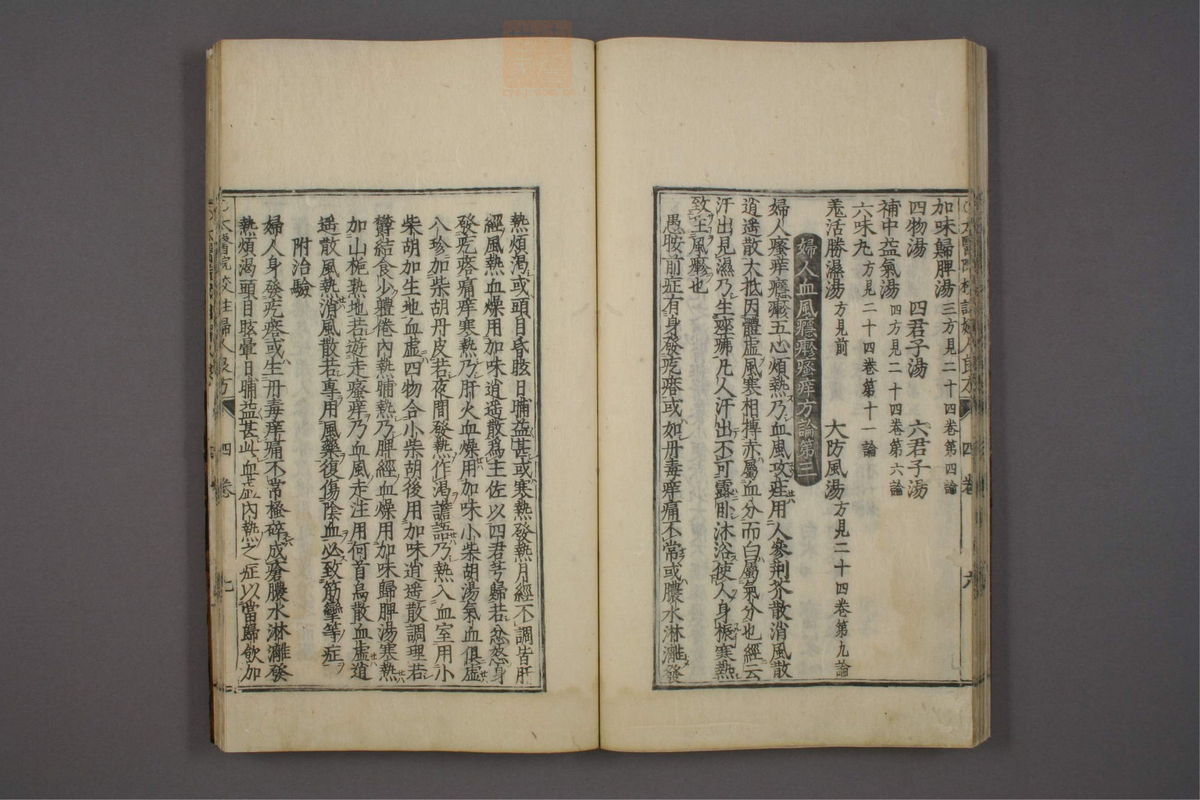 加味歸脾湯 三方見二十四卷第四論
四物湯 四君子湯 六君子湯
補中益氣湯 四方見二十四卷第六論
六味丸 方見二十四卷第十一論
羗活勝濕湯 方見前 大防風湯 方見二十四卷第九論
婦人血風癮㾦瘙痒方論第三
婦人瘙痒癮㾦五心煩熱乃血風攻疰用人參荆芥散消風散
逍遥散大抵因體虛風寒相搏赤屬血分而白屬氣分也經云
汗出見濕乃生痤疿凡人汗出不可露卧沐浴使人身振寒熱
致生風㾦也
愚按前症有身發疙瘩或如丹毒痒痛不常或膿水淋漓發
熱煩渴或頭目昏眩日晡益甚或寒熱發熱月經不調皆肝
經風熱血燥用加味逍遥散爲主佐以四君芎歸若忿怒身
發疙瘩痛痒寒熱乃肝火血燥用加味小柴胡湯氣血俱虛
八珍加柴胡丹皮若夜間發熱作渴譫語乃熱入血室用小
柴胡加生地血虛四物合小柴胡後用加味逍遥散調理若
欝結食少體倦内熱晡熱乃脾經血燥用加味歸脾湯寒熱
加山梔熟地若遊走瘙痒乃血風走注用何首烏散血虛逍
遥散風熱消風散若專用風藥復傷陰血必致筋攣等症
附治驗
婦人身發疙瘩或生丹毒痒痛不常搔碎成瘡膿水淋漓發
熱煩渴頭目眩暈日晡益甚此血虛内熱之症以當歸飲加
太醫院校註婦人良方
四卷
七